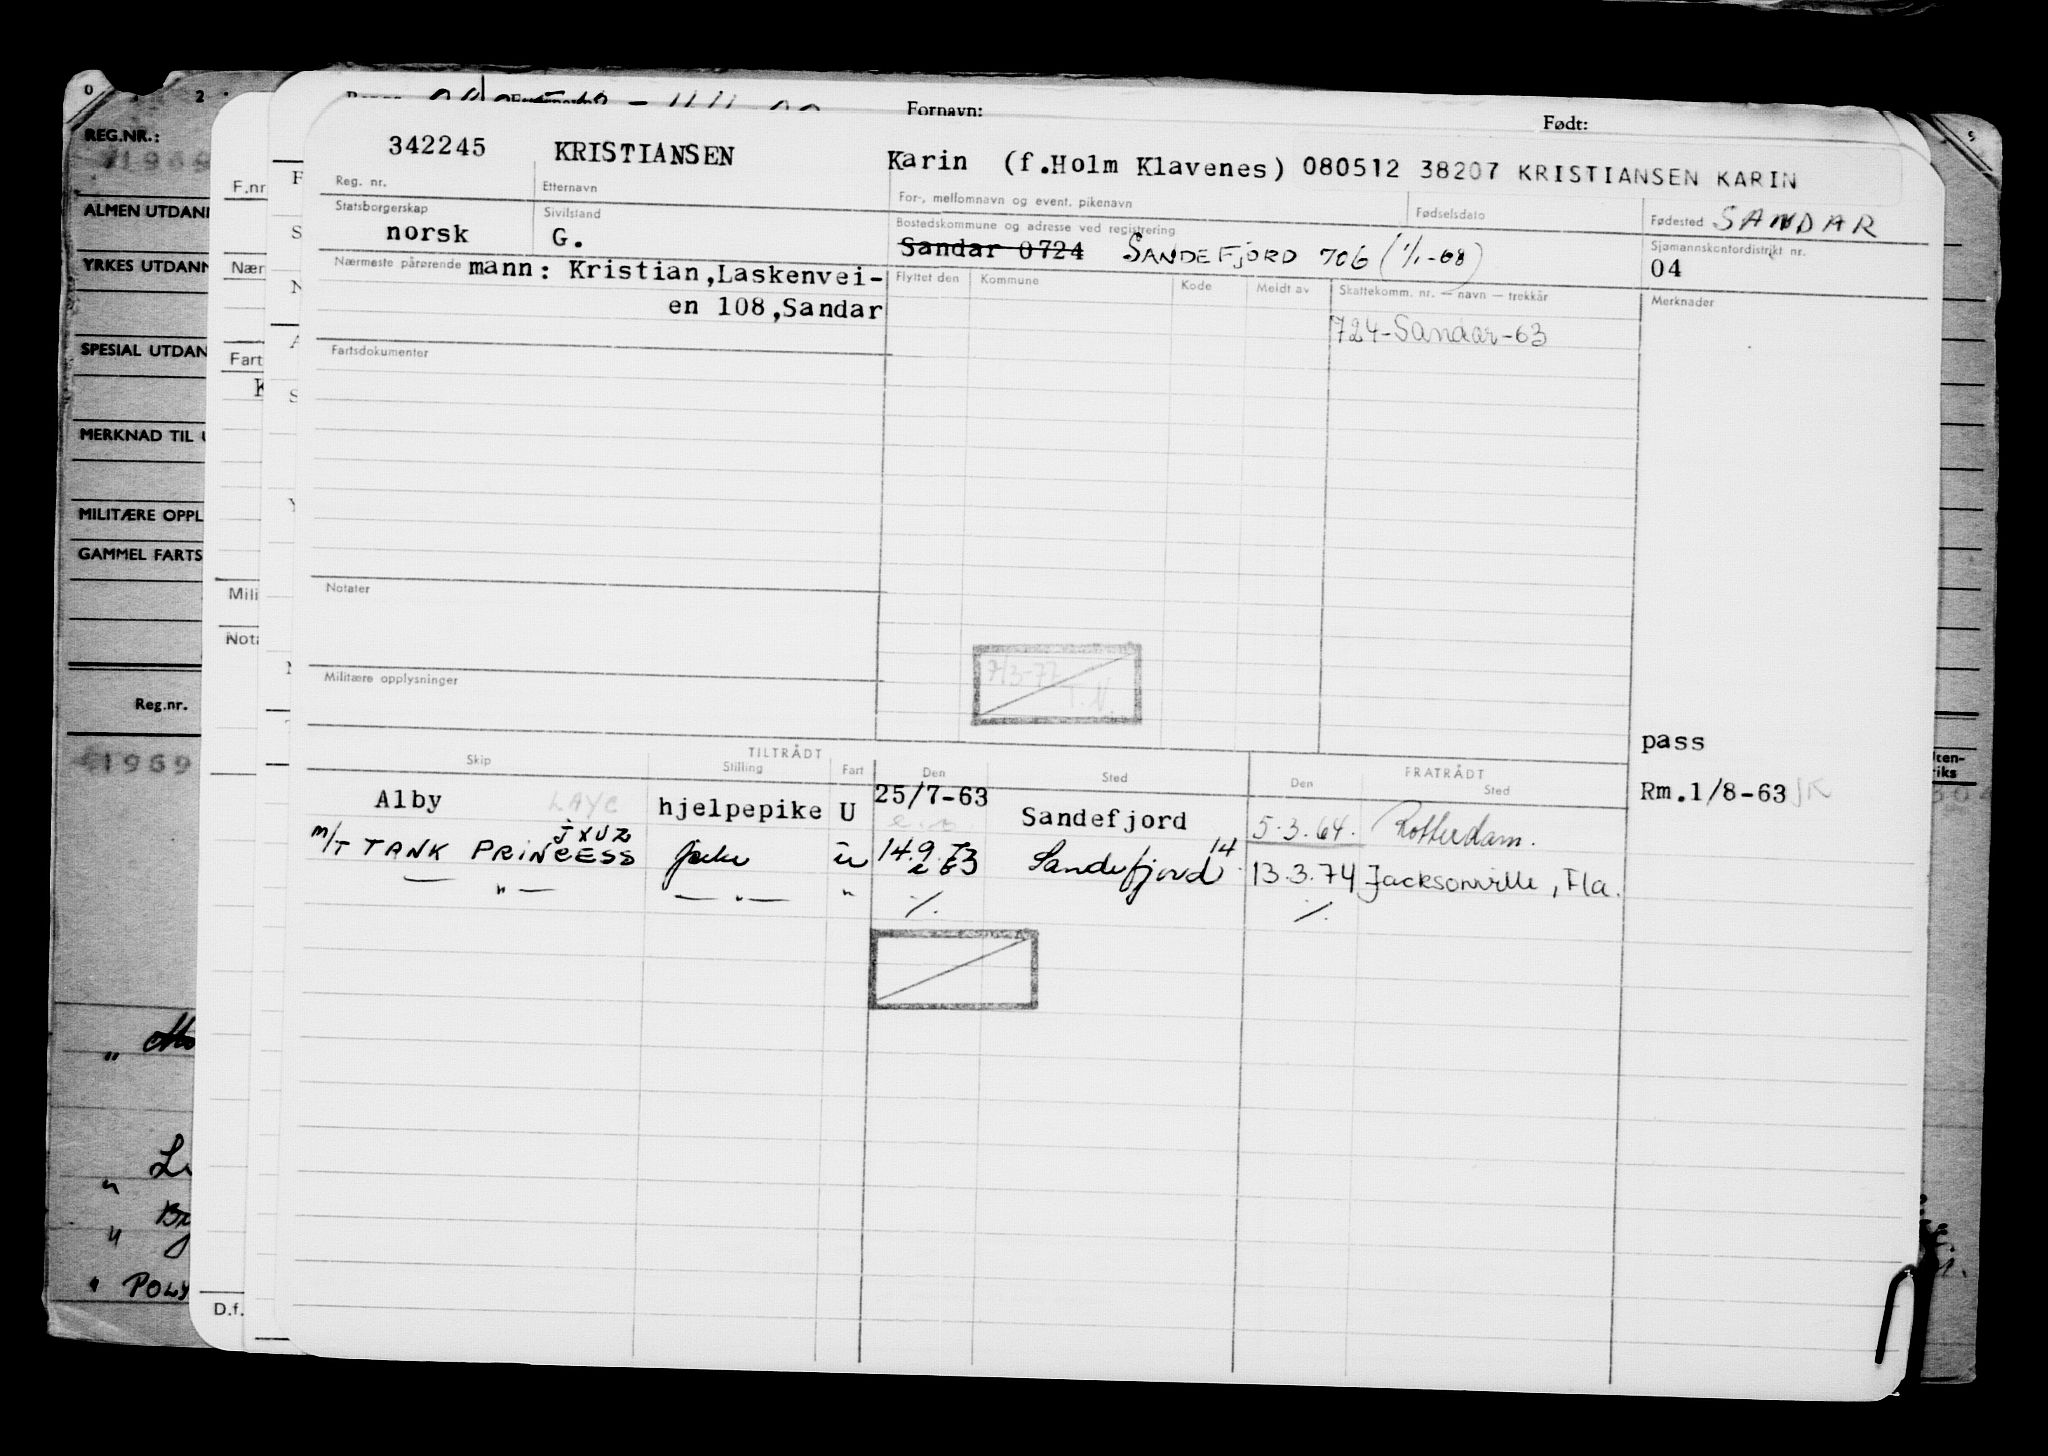 Fornavn:
Født:
342245 KRISTIANSEN Karin (f.Holm Klavenes) 080512 38207 KRISTIANSEN KARIN
Reg. nr. Etternavn For-, mellomnavn og event. pikenavn Fødselsdato Fødested SANDAR
Statsborgerskap Sivilstand Bostedskommune og adresse ved registrering Sjømannskontordistrikt nr.
norsk G. Sandar 0724 SANDEFJORD 706 (1/1-68) 04
Nærmeste pårørende mann: Kristian,Laskenvei-
en 108,Sandar
Flyttet den Kommune Kode Meldt av Skattekomm. nr. — navn — trekkår Merknader
724-Sandar-63
Fartsdokumenter
Notater
7/3-77
T.N.
Militære opplysninger
pass
Rm.1/8-63 JK
TILTRÅDT FRATRÅDT
Skip Stilling Fart Den Sted Den Sted
Alby LAYC hjelpepike U 25/7-63 Sandefjord 5.3.64. Rotterdam.
JXUZ
M/T TANK PRINCESS pike u 14.9.73 Sandefjord 14 13.3.74 Jacksonville, Fla.
— " — — " — " %. %.
0
2
5
REG.NR.:
1969
ALMEN UTDANN
YRKES UTDANN
SPESIAL UTDAN
MERKNAD TIL U
MILITÆRE OPPL
GAMMEL FARTS
Reg.nr.
1969
F.nr
Nær
Fart
K
Mili
Nota
D.f.
" POLY